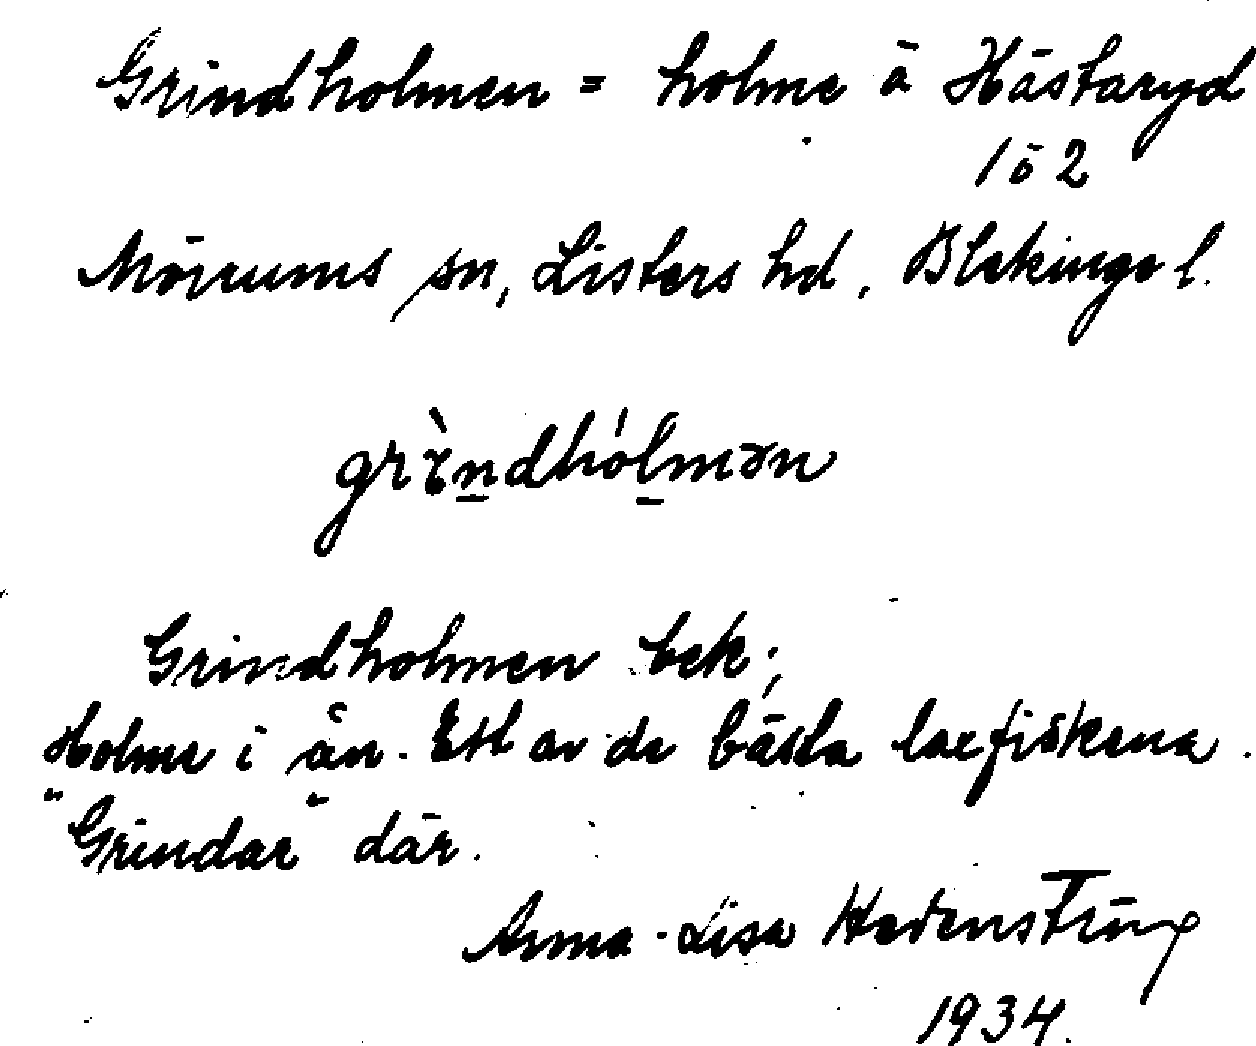 Grindholmen = holme ā Hästaryd
1 ō 2
Mörrums sn, Listers hd, Blekinge l.
grìndhólmən
Grindholmen bek;
Holme i ån. Ett av de bästa laxfiskena.
"Grindar" där.
Anna-Lisa
1934.